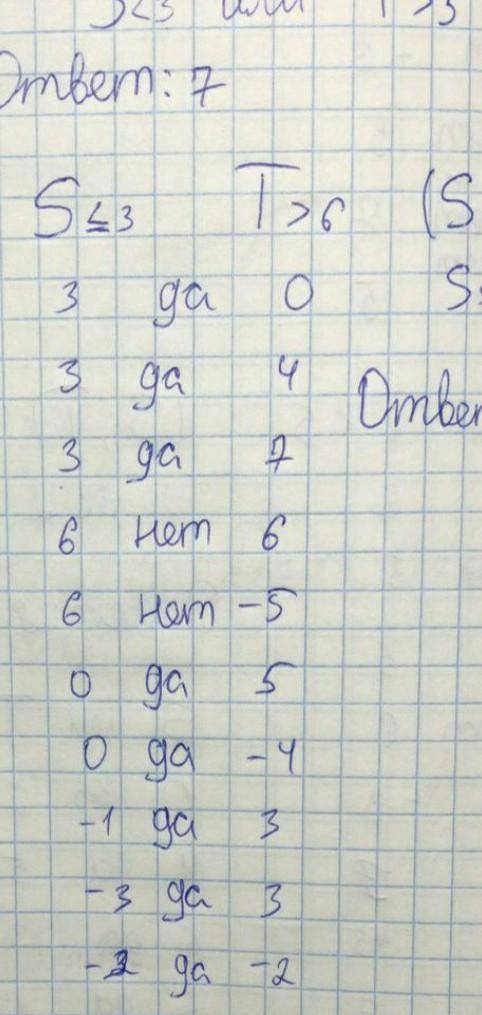 S<3 или T>5
Ответ: 7
S≤3 T>6 (S
3 да 0 S
3 да 4
Ответ
3 да 7
6 нет 6
6 нет -5
0 да 5
0 да -4
-1 да 3
-3 да 3
да -2